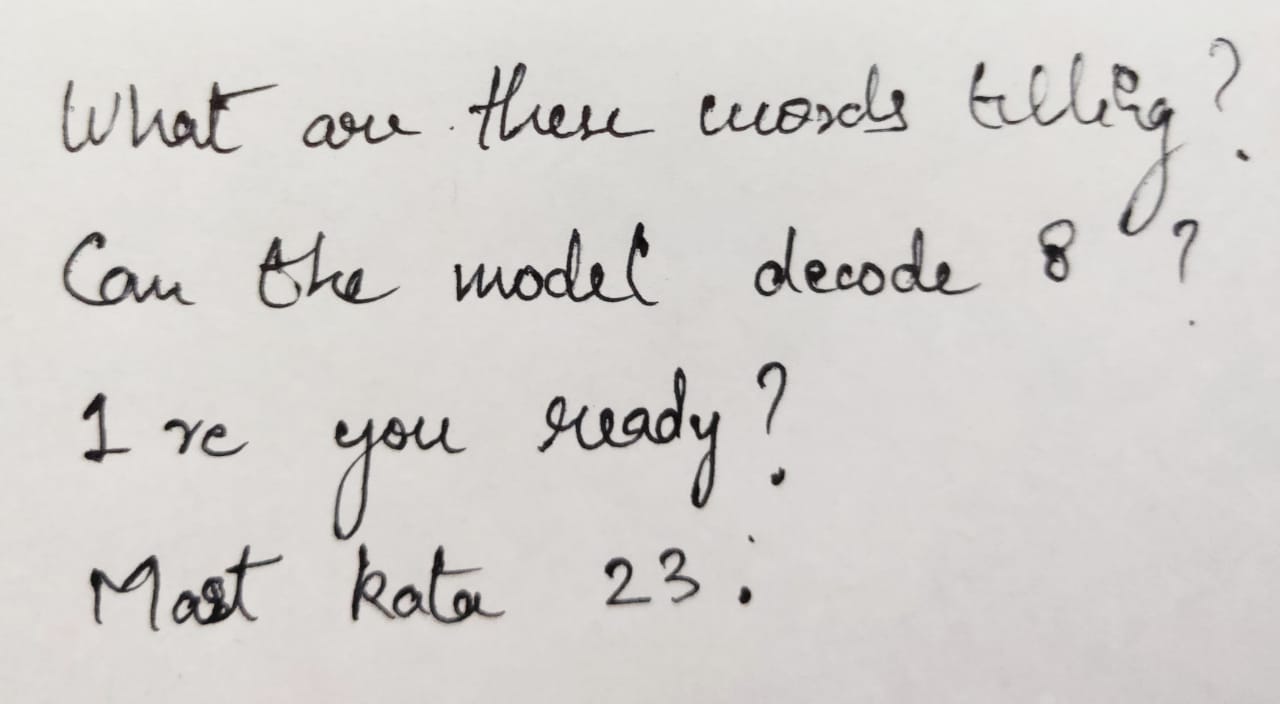 What are these words telling?
Can the model decode 8 ?
1 re you ready?
Mast kata 23 :